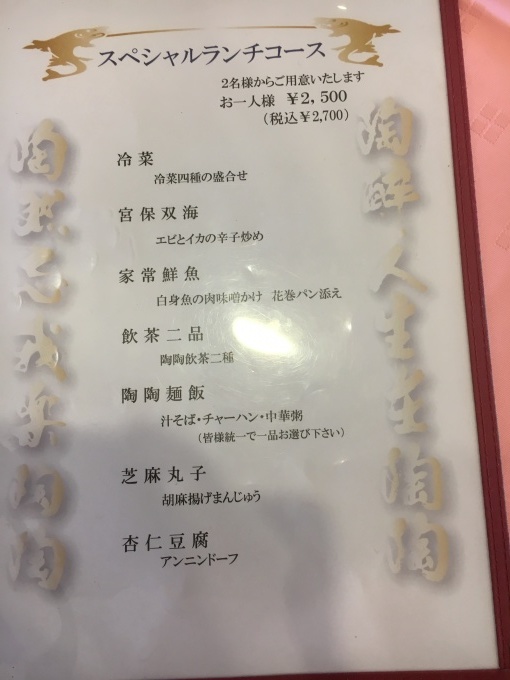 スペシャルランチコース
2名様からご用意いたします
お一人様 ￥2,500
(税込￥2,700)
冷菜
冷菜四種の盛合せ
宮保双海
エビとイカの辛子炒め
家常鮮魚
白身魚の肉味噌かけ 花巻パン添え
飲茶二品
陶陶飲茶二種
陶陶麺飯
汁そば・チャーハン・中華粥
(皆様統一で一品お選び下さい)
芝麻丸子
胡麻揚げまんじゅう
杏仁豆腐
アンニンドーフ
陶酔人生任陶陶
陶然忘我楽陶陶